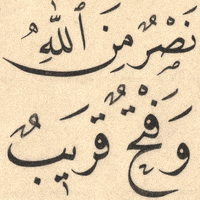 نَصْرٌ مِنَ ٱللَّهِ
وَفَتْحٌ قَرِيبٌ